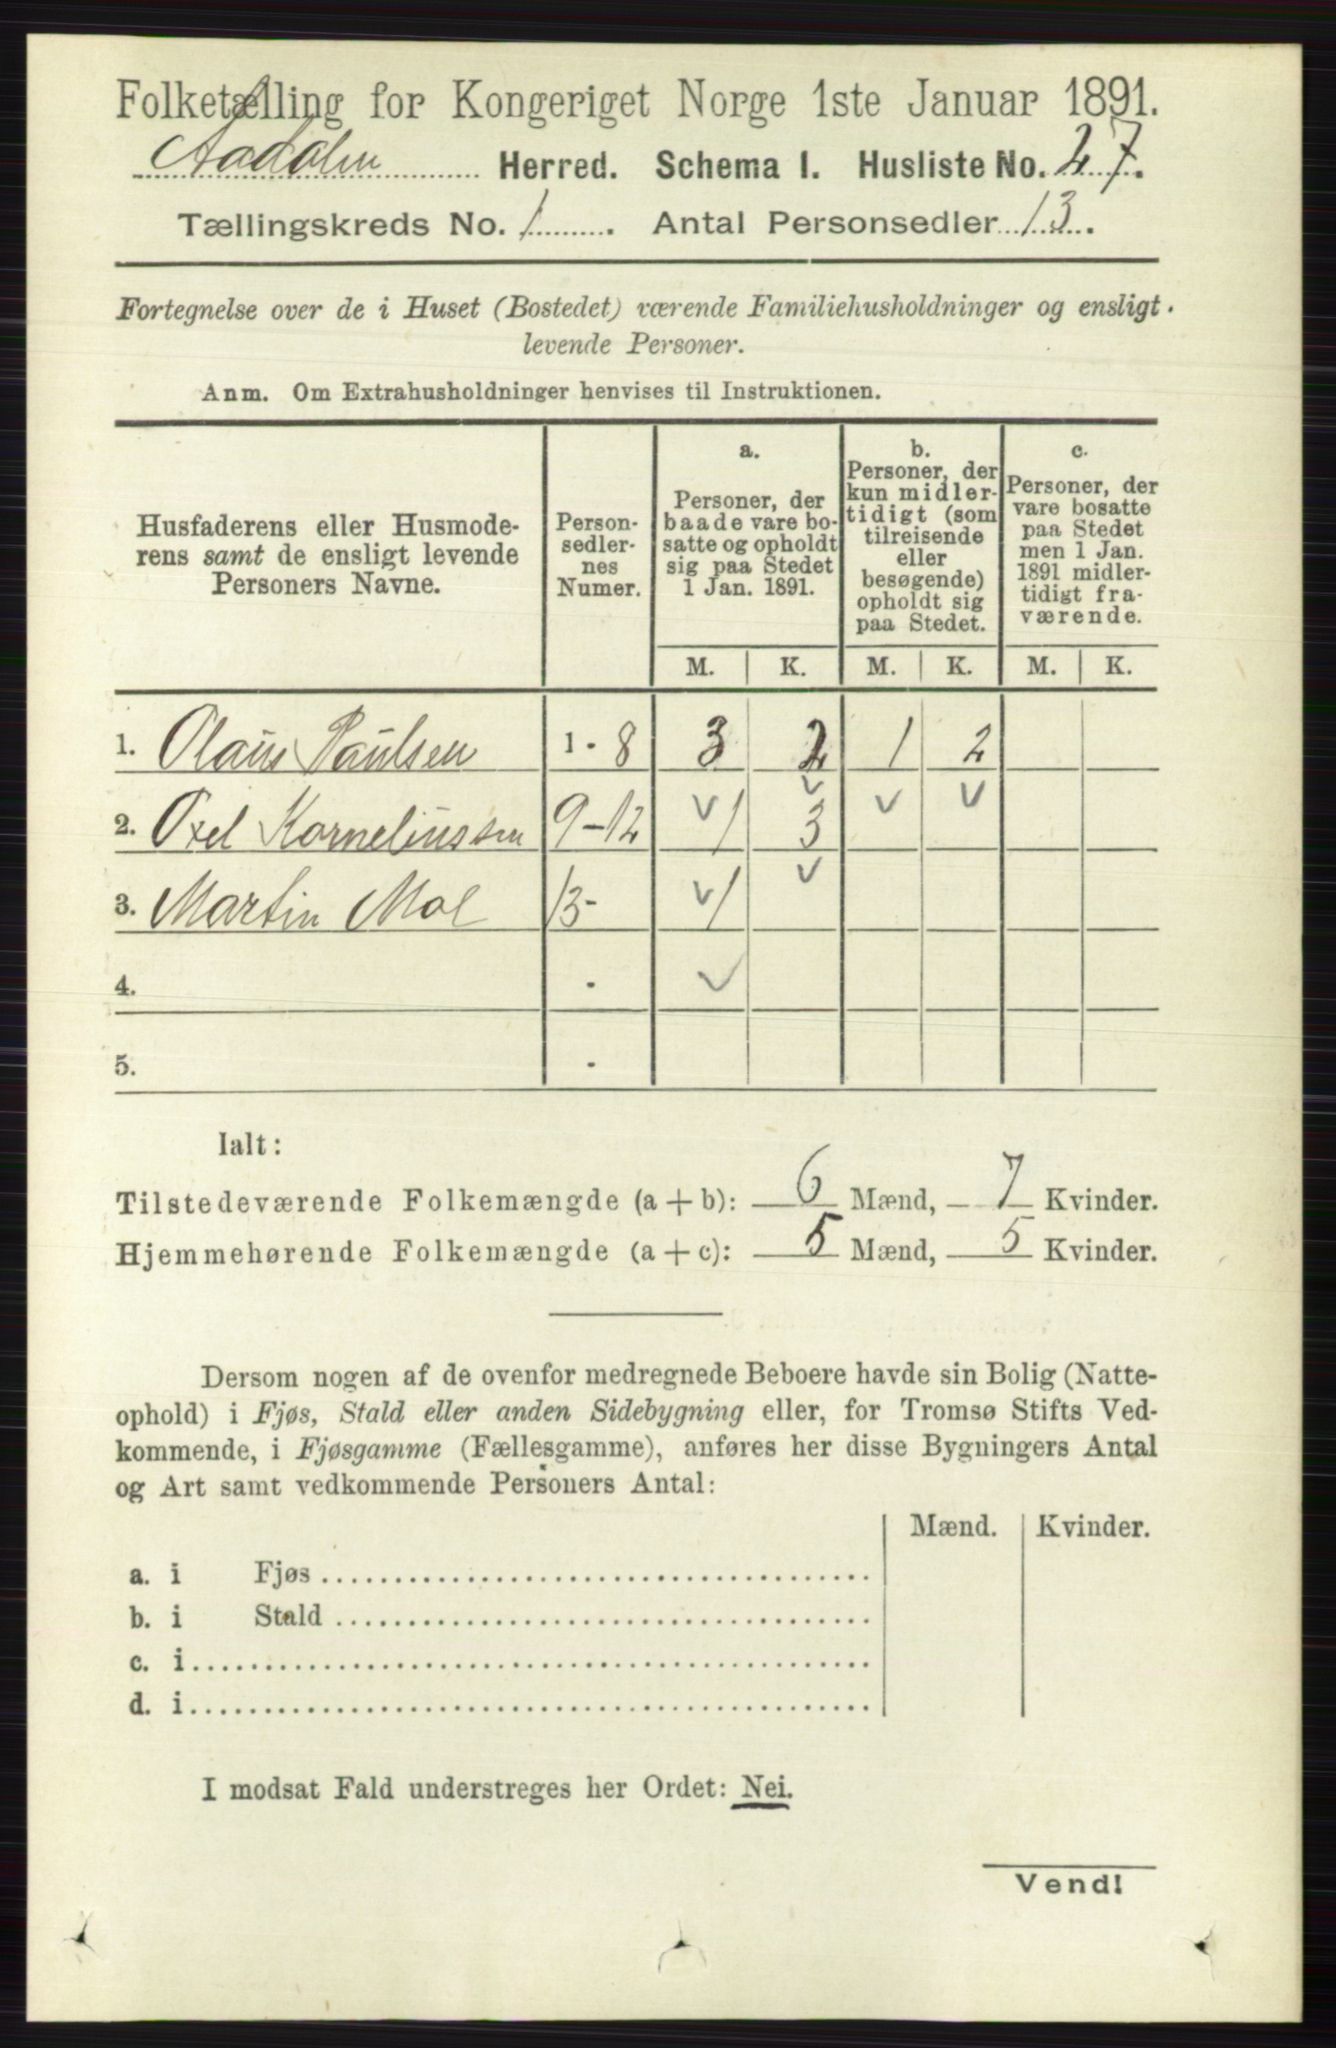 Folketælling for Kongeriget Norge 1ste Januar 1891.
Aadalen Herred. Schema I. Husliste No. 27.
Tællingskreds No. 1. Antal Personsedler 13.
Fortegnelse over de i Huset (Bostedet) værende Familiehusholdninger og ensligt
levende Personer.
Anm. Om Extrahusholdninger henvises til Instruktionen.
Husfaderens eller Husmode-
rens samt de ensligt levende
Personers Navne.
Person-
sedler-
nes
Numer.
a.
Personer, der
baade vare bo-
satte og opholdt
sig paa Stedet
1 Jan. 1891.
b.
Personer, der
kun midler-
tidigt (som
tilreisende
eller
besøgende)
opholdt sig
paa Stedet.
c.
Personer, der
vare bosatte
paa Stedet
men 1 Jan.
1891 midler-
tidigt fra-
værende.
M. K. M. K. M. K.
1. Olaus Paulsen 1 - 8 3 2 1 2
2. Oxel Korneliussen 9-12 1 3
3. Martin Moe 13- 1
4. -
5. -
Ialt:
Tilstedeværende Folkemængde (a + b): 6 Mænd, 7 Kvinder.
Hjemmehørende Folkemængde (a + c): 5 Mænd, 5 Kvinder.
Dersom nogen af de ovenfor medregnede Beboere havde sin Bolig (Natte-
ophold) i Fjøs, Stald eller anden Sidebygning eller, for Tromsø Stifts Ved-
kommende, i Fjøsgamme (Fællesgamme), anføres her disse Bygningers Antal
og Art samt vedkommende Personers Antal:
Mænd. Kvinder.
a. i Fjøs
b. i Stald
c. i
d. i
I modsat Fald understreges her Ordet: Nei.
Vend!